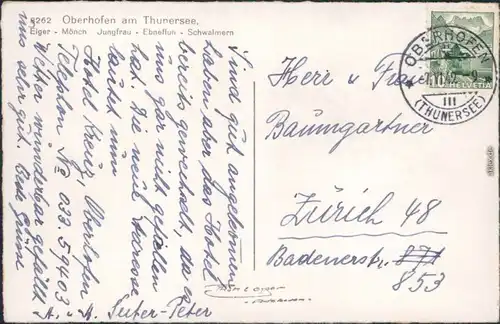 8262 Oberhofen am Thunersee,
Eiger - Mönch Jungfrau - Ebnefluh - Schwalmern
Sind gut angekommen
haben aber das Hotel
bereits gewechselt, da es
uns gar nicht gefallen
hat. Die neue Adresse
lautet nun
Hotel Kreuz, Oberhofen
Telephon No 033.59403
Wetter wunderbar gefällt
uns sehr gut. Beste Grüsse
A. u. A. Suter-Peter
Herr u Frau
Baumgartner
Zürich 48
Badenerstr. 871
853
OBERHOFEN
VI.42 - 9
III
(THUNERSEE)
HELVETIA